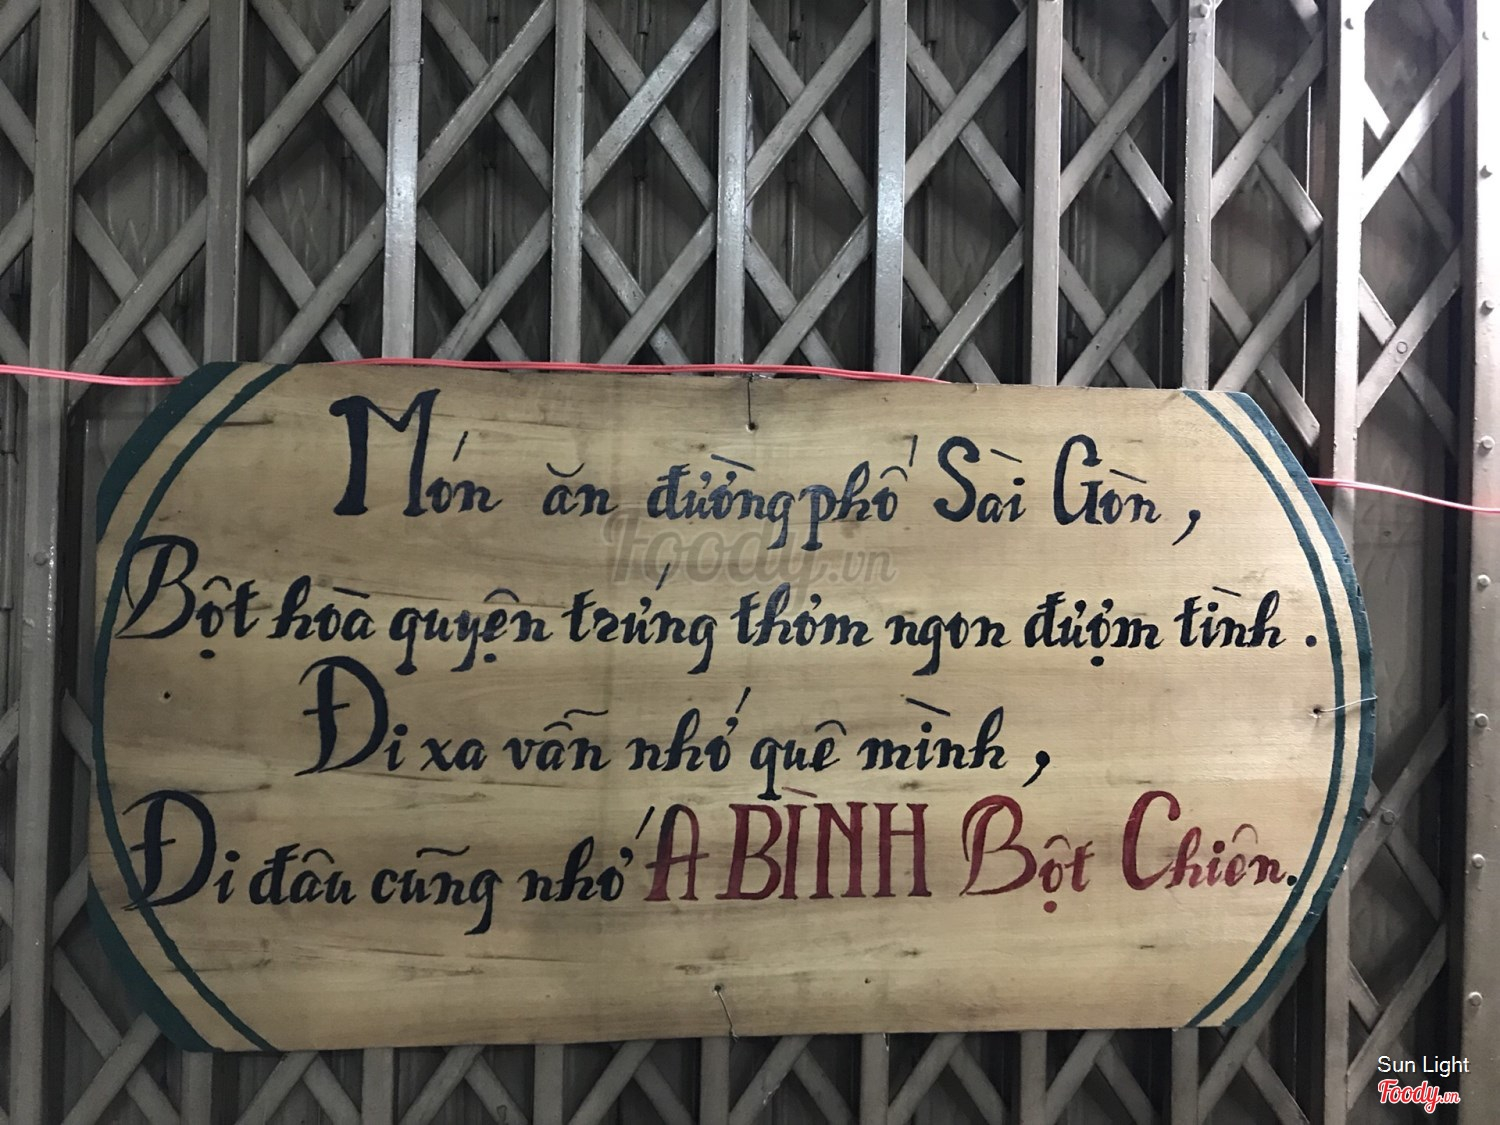 Món ăn đường phố Sài Gòn,
Bột hòa quyện trứng thơm ngon đượm tình.
Đi xa vẫn nhớ quê mình,
Đi đâu cũng nhớ A BÌNH Bột Chiên.
Foody.vn
Sun Light
Foody.vn